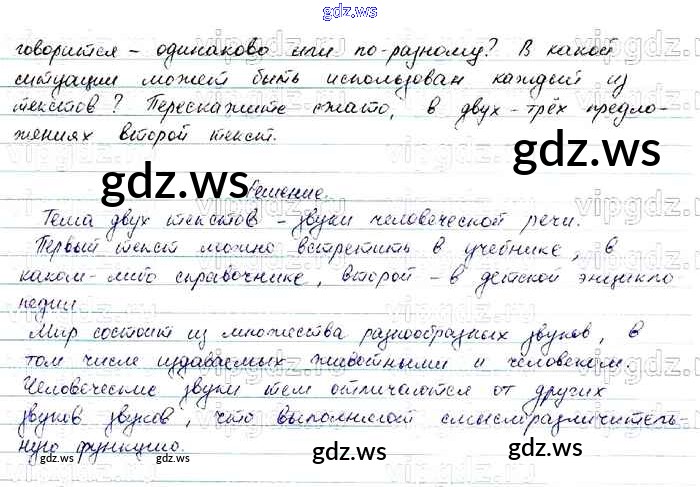 gdz.ws
говорится - одинаково или по-разному? В какой
ситуации может быть использован каждый из
текстов? Перескажите сжато, в двух-трёх предло-
жениях второй текст.
gdz.ws gdz.ws
Решение.
Тема двух текстов - звуки человеческой речи.
Первый текст можно встретить в учебнике, в
каком-либо справочнике, второй - в детской энцикло
педии.
Мир состоит из множества разнообразных звуков, в
том числе издаваемых животными и человеком.
gdz.ws gdz.ws
Человеческие звуки тем отличаются от других
звуков звуков, что выполняют смыслразличитель-
ную функцию.
gdz.ws gdz.ws gdz.ws
gdz.ws